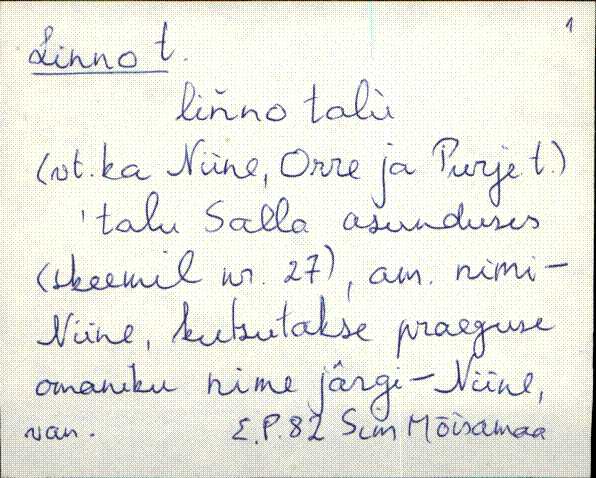 1
Linno t.
liñno talù
(vt. ka Niine, Orre ja Purje t.)
'talu Salla asunduses
(skeemil nr. 27), am. nimi-
Niine, kutsutakse praeguse
omaniku nime järgi-Niine,
van. E.P.82 Sim Mõisamaa